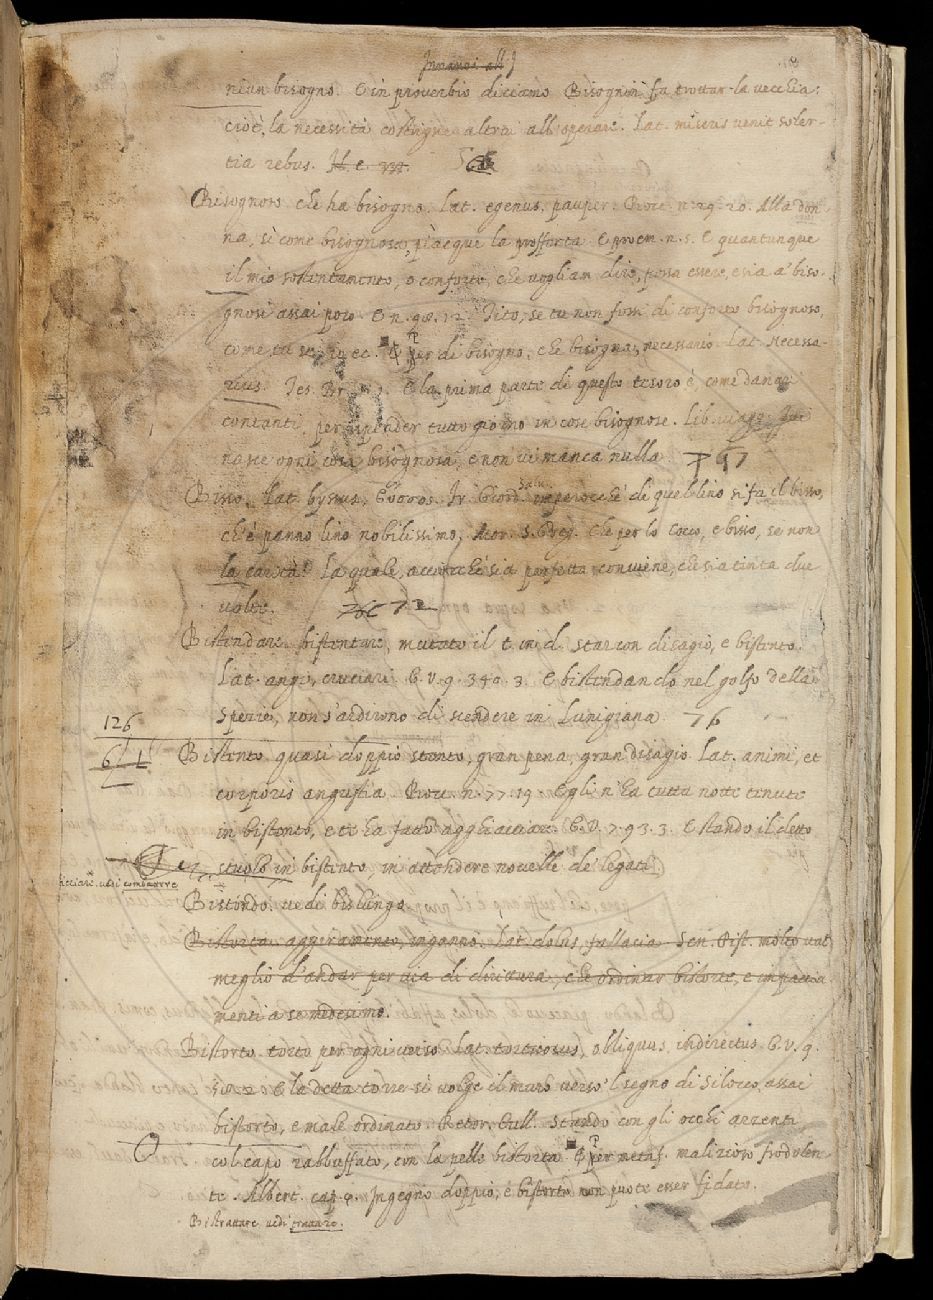 Innanzi all
neun bisogno. E in proverbio diciamo Bisognin fa trottar la vecchia:
cioè, la necessità costrigne altrui all'operare. Lat. miseris venit soler-
tia rebus. H. e
Bisognoso che ha bisogno. Lat. egenus, pauper. Bocc. n. 29. 20. Alla don-
na, sì come bisognosa, piacque la profferta. E proem. n. 5. E quantunque
il mio sostentamento, o conforto, che vogliam dire, possa essere, e sia a' biso-
gnosi assai poco. E n. 98. 12. Tito, se tu non fossi di conforto bisognoso,
come tu se', io ec. E per di bisogno, che bisogna, necessario. Lat. Necessa-
rius. Tes. Br. E la prima parte di questo tesoro è come danari
contanti, per ispender tutto giorno in cose bisognose. Lib. viagg.
nasce ogni cosa bisognosa, e non vi manca nulla. 97
Bisso. Lat. byssus, βύσσος. Fr. Giord. Salv. imperocchè di quel lino si fa il bisso,
ch'è panno lino nobilissimo. Mor. S. Greg. Che per lo cocco, e bisso, se non
la carità? La quale, acciocchè sia perfetta conviene, che sia tinta due
volte. 72
Bistendare, bistentare, mutato il t. in d. star con disagio, e bistento.
Lat. angi, cruciari. G. V. 9. 340. 3. E bistendando nel golfo della
Spezie, non s'ardirono di scendere in Lunigiana 76
126
Bistento quasi doppio stento, gran pena, gran disagio. Lat. animi, et
corporis angustia. Bocc. n. 77. 19. Egli n'ha tutta notte tenute
in bistento, e te ha fatto agghiacciare. G. V. 7. 93. 3. E stando il detto
stuolo in bistento, in attendere novelle de' legati
vedi comburre
Bistondo. vedi bislungo.
Bistorta. aggiramento, inganno. Lat. dolus, fallacia. Sen. Pist. molto val
meglio d'andar per via di dirittura, che ordinar bistorte, e impaccia-
menti a se medesimo.
Bistorto. torto per ogni verso. Lat. tortuosus, obliquus, indirectus. G. V. 9.
E la detta torre si volge il muro verso 'l segno di Silocco, assai
bistorto, e male ordinato. Retor. Tull. Stando con gli occhi arzenti
col capo rabbuffato, con la pelle bistorta. E per metaf. malizioso frodolen-
te. Albert. cap. 9. Ingegno doppio, e bistorto non puote esser fidato.
Bistrattare vedi trattare.